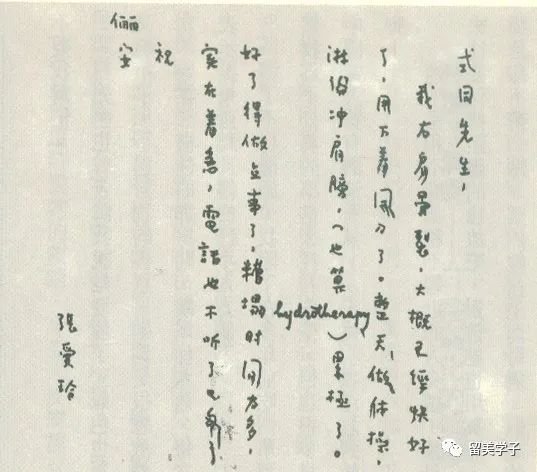 式同先生，
我右肩骨裂，大概已經快好
了，用不着開刀了。整天做体操，
淋浴冲肩膀，（也算hydrotherapy）累極了。
好了得做点事了，糟塌时間太多，
實在着急，電話也不听了
祝
儷安
張愛玲
留美学子